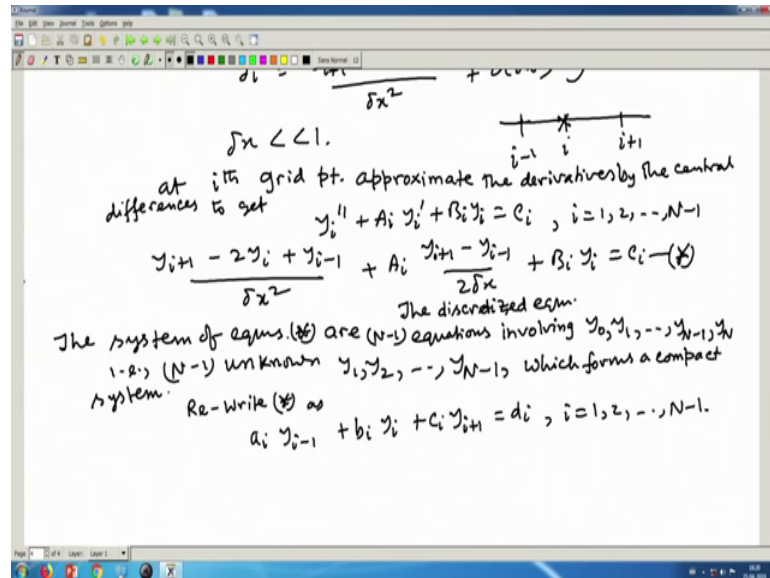 File Edit View Journal Tools Options Help
Sans Normal 12
δx²
δx << 1.
i-1 i i+1
at ith grid pt. approximate the derivatives by the central
differences to get
y_i'' + A_i y_i' + B_i y_i = C_i , i=1, 2, --, N-1
(y_{i+1} - 2y_i + y_{i-1})/δx² + A_i (y_{i+1} - y_{i-1})/2δx + B_i y_i = C_i —(*)
The discretized eqn.
The system of eqns.(*) are (N-1) equations involving y_0, y_1, --, y_{N-1}, y_N
i.e., (N-1) unknown y_1, y_2, --, y_{N-1}, which forms a compact
system.
Re-write (*) as
a_i y_{i-1} + b_i y_i + c_i y_{i+1} = d_i , i=1, 2, --, N-1.
Page 4 of 4 Layer: Layer 1